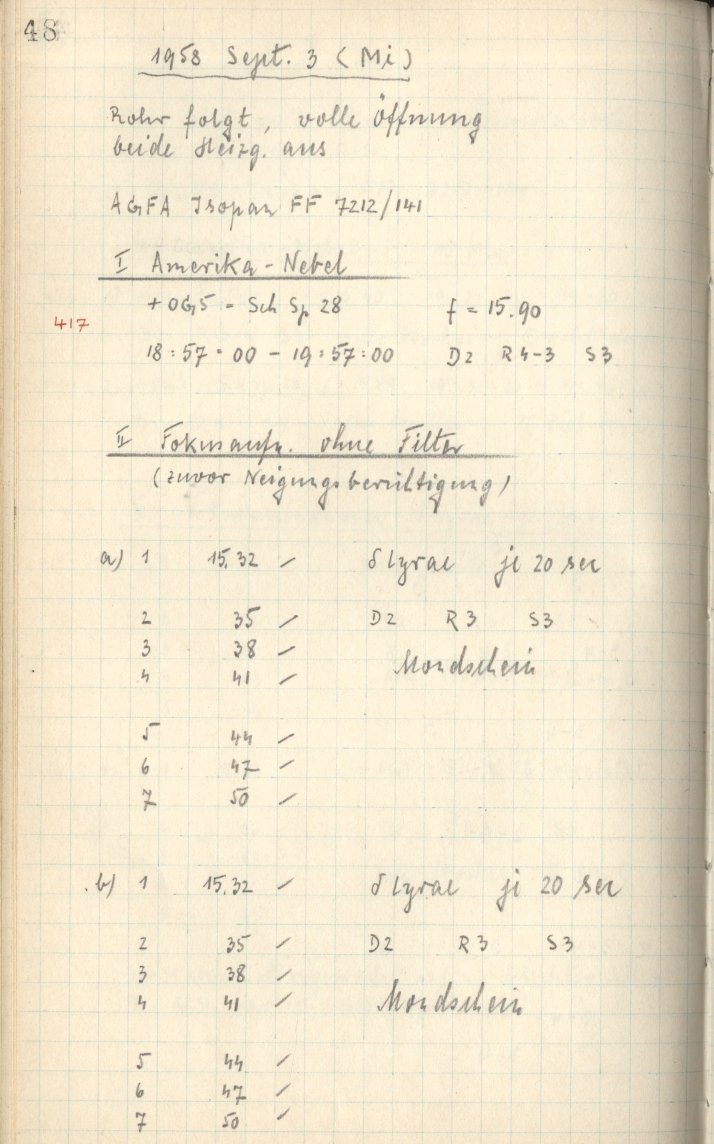 48
1958 Sept. 3 (Mi)
Rohr folgt, volle Öffnung
beide Heizg. aus
AGFA Isopan FF 7212/141
I Amerika-Nebel
+ OG5 - Sch Sp 28 f = 15.90
417
18:57:00 - 19:57:00 D2 R4-3 S3
II Fokusaufn. ohne Filter
(zuvor Neigungsberichtigung)
a) 1 15.32 ✓ δ Lyrae je 20 sec
2 35 ✓ D2 R3 S3
3 38 ✓
Mondschein
4 41 ✓
5 44 ✓
6 47 ✓
7 50 ✓
b) 1 15.32 ✓ δ Lyrae je 20 sec
2 35 ✓ D2 R3 S3
3 38 ✓
4 41 ✓ Mondschein
5 44 ✓
6 47 ✓
7 50 ✓